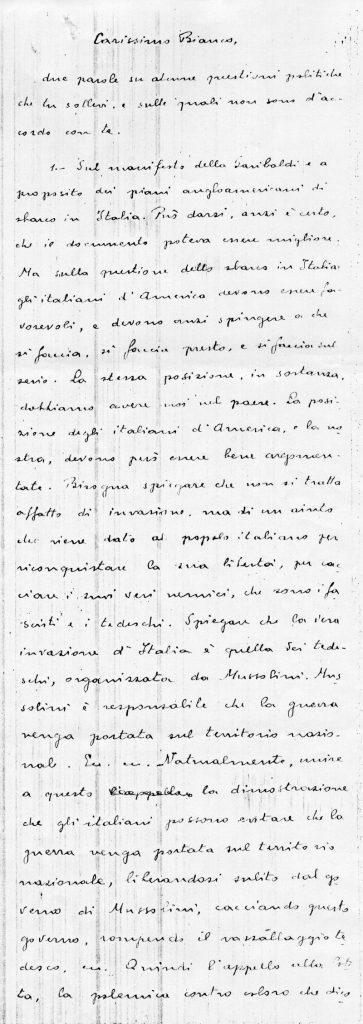 Carissimo Bianco,
due parole su alcune questioni politiche
che tu sollevi, e sulle quali non sono d'ac-
cordo con te.
1.- Sul manifesto della Garibaldi e a
proposito dei piani angloamericani di
sbarco in Italia. Può darsi, anzi è certo,
che il documento poteva essere migliore.
Ma sulla questione dello sbarco in Italia
gli italiani d'America devono essere fa-
vorevoli, e devono anzi spingere a che
si faccia, si faccia presto, e si faccia sul
serio. La stessa posizione, in sostanza,
dobbiamo avere noi nel paese. La posi-
zione degli italiani d'America, e la no-
stra, devono però essere bene argomen-
tate. Bisogna spiegare che non si tratta
affatto di invasione, ma di un aiuto
che viene dato al popolo italiano per
riconquistare la sua libertà, per cac-
ciare i suoi veri nemici, che sono i fa-
scisti e i tedeschi. Spiegare che la vera
invasione d'Italia è quella dei tede-
schi, organizzata da Mussolini. Mus-
solini è responsabile che la guerra
venga portata sul territorio nazio-
nale. Ecc. ecc. Naturalmente, unire
a questo la dimostrazione
che gli italiani possono evitare che la
guerra venga portata sul territorio
nazionale, liberandosi subito dal go-
verno di Mussolini, cacciando questo
governo, rompendo il vassallaggio te-
desco, ecc. Quindi l'appello alla lot-
ta, la polemica contro coloro che dico